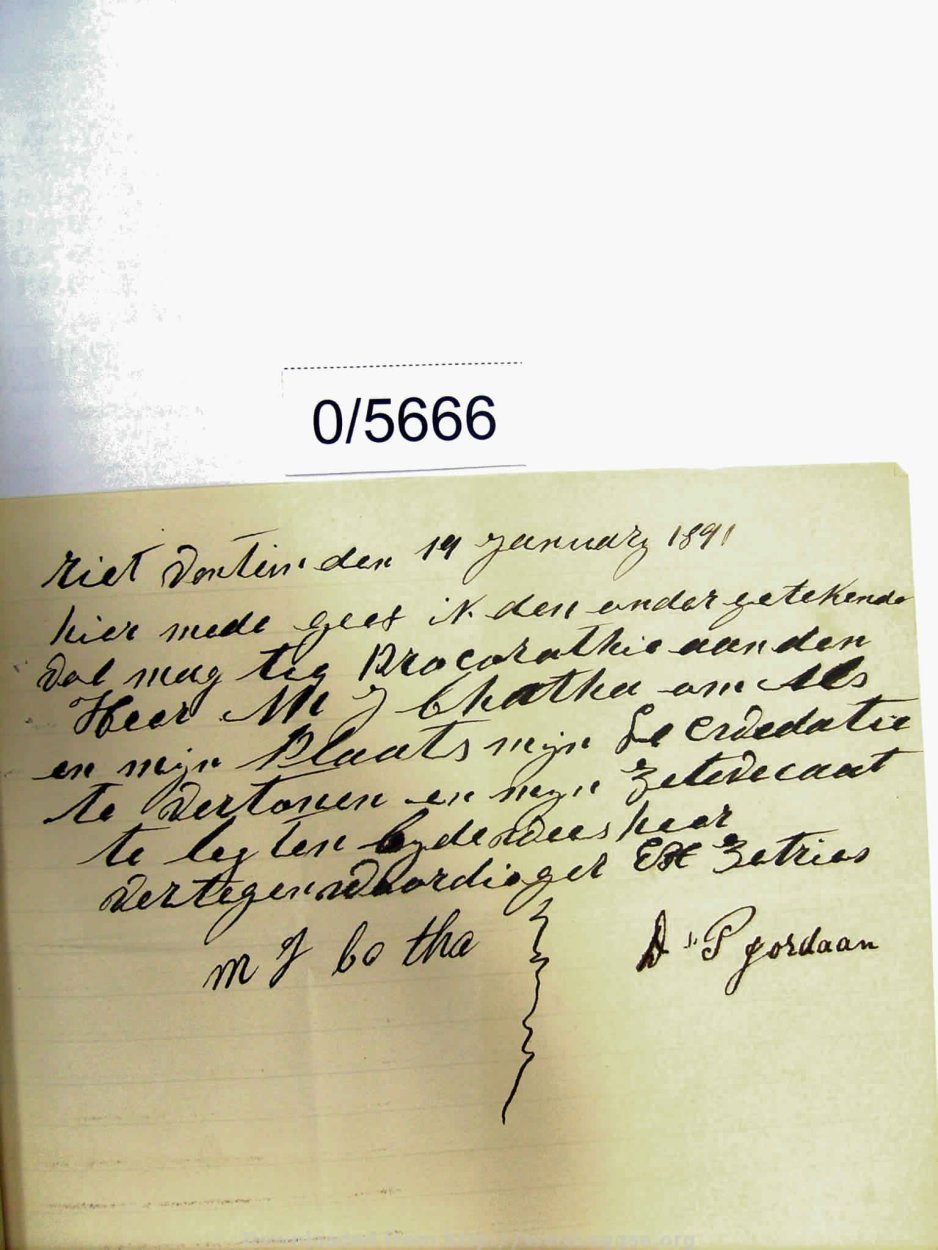 0/5666
Riet Vontein den 19 January 1891
hier mede geef ik den onder getekende
Vol mag tig Procorathie aan den
Heer M J Bhatha om Als
en mijn Plaats mijn
te Vertonen en mijn
te leg ten by de Wees heer
Vertegenwoordiger
M J bo tha
D P Jordaan